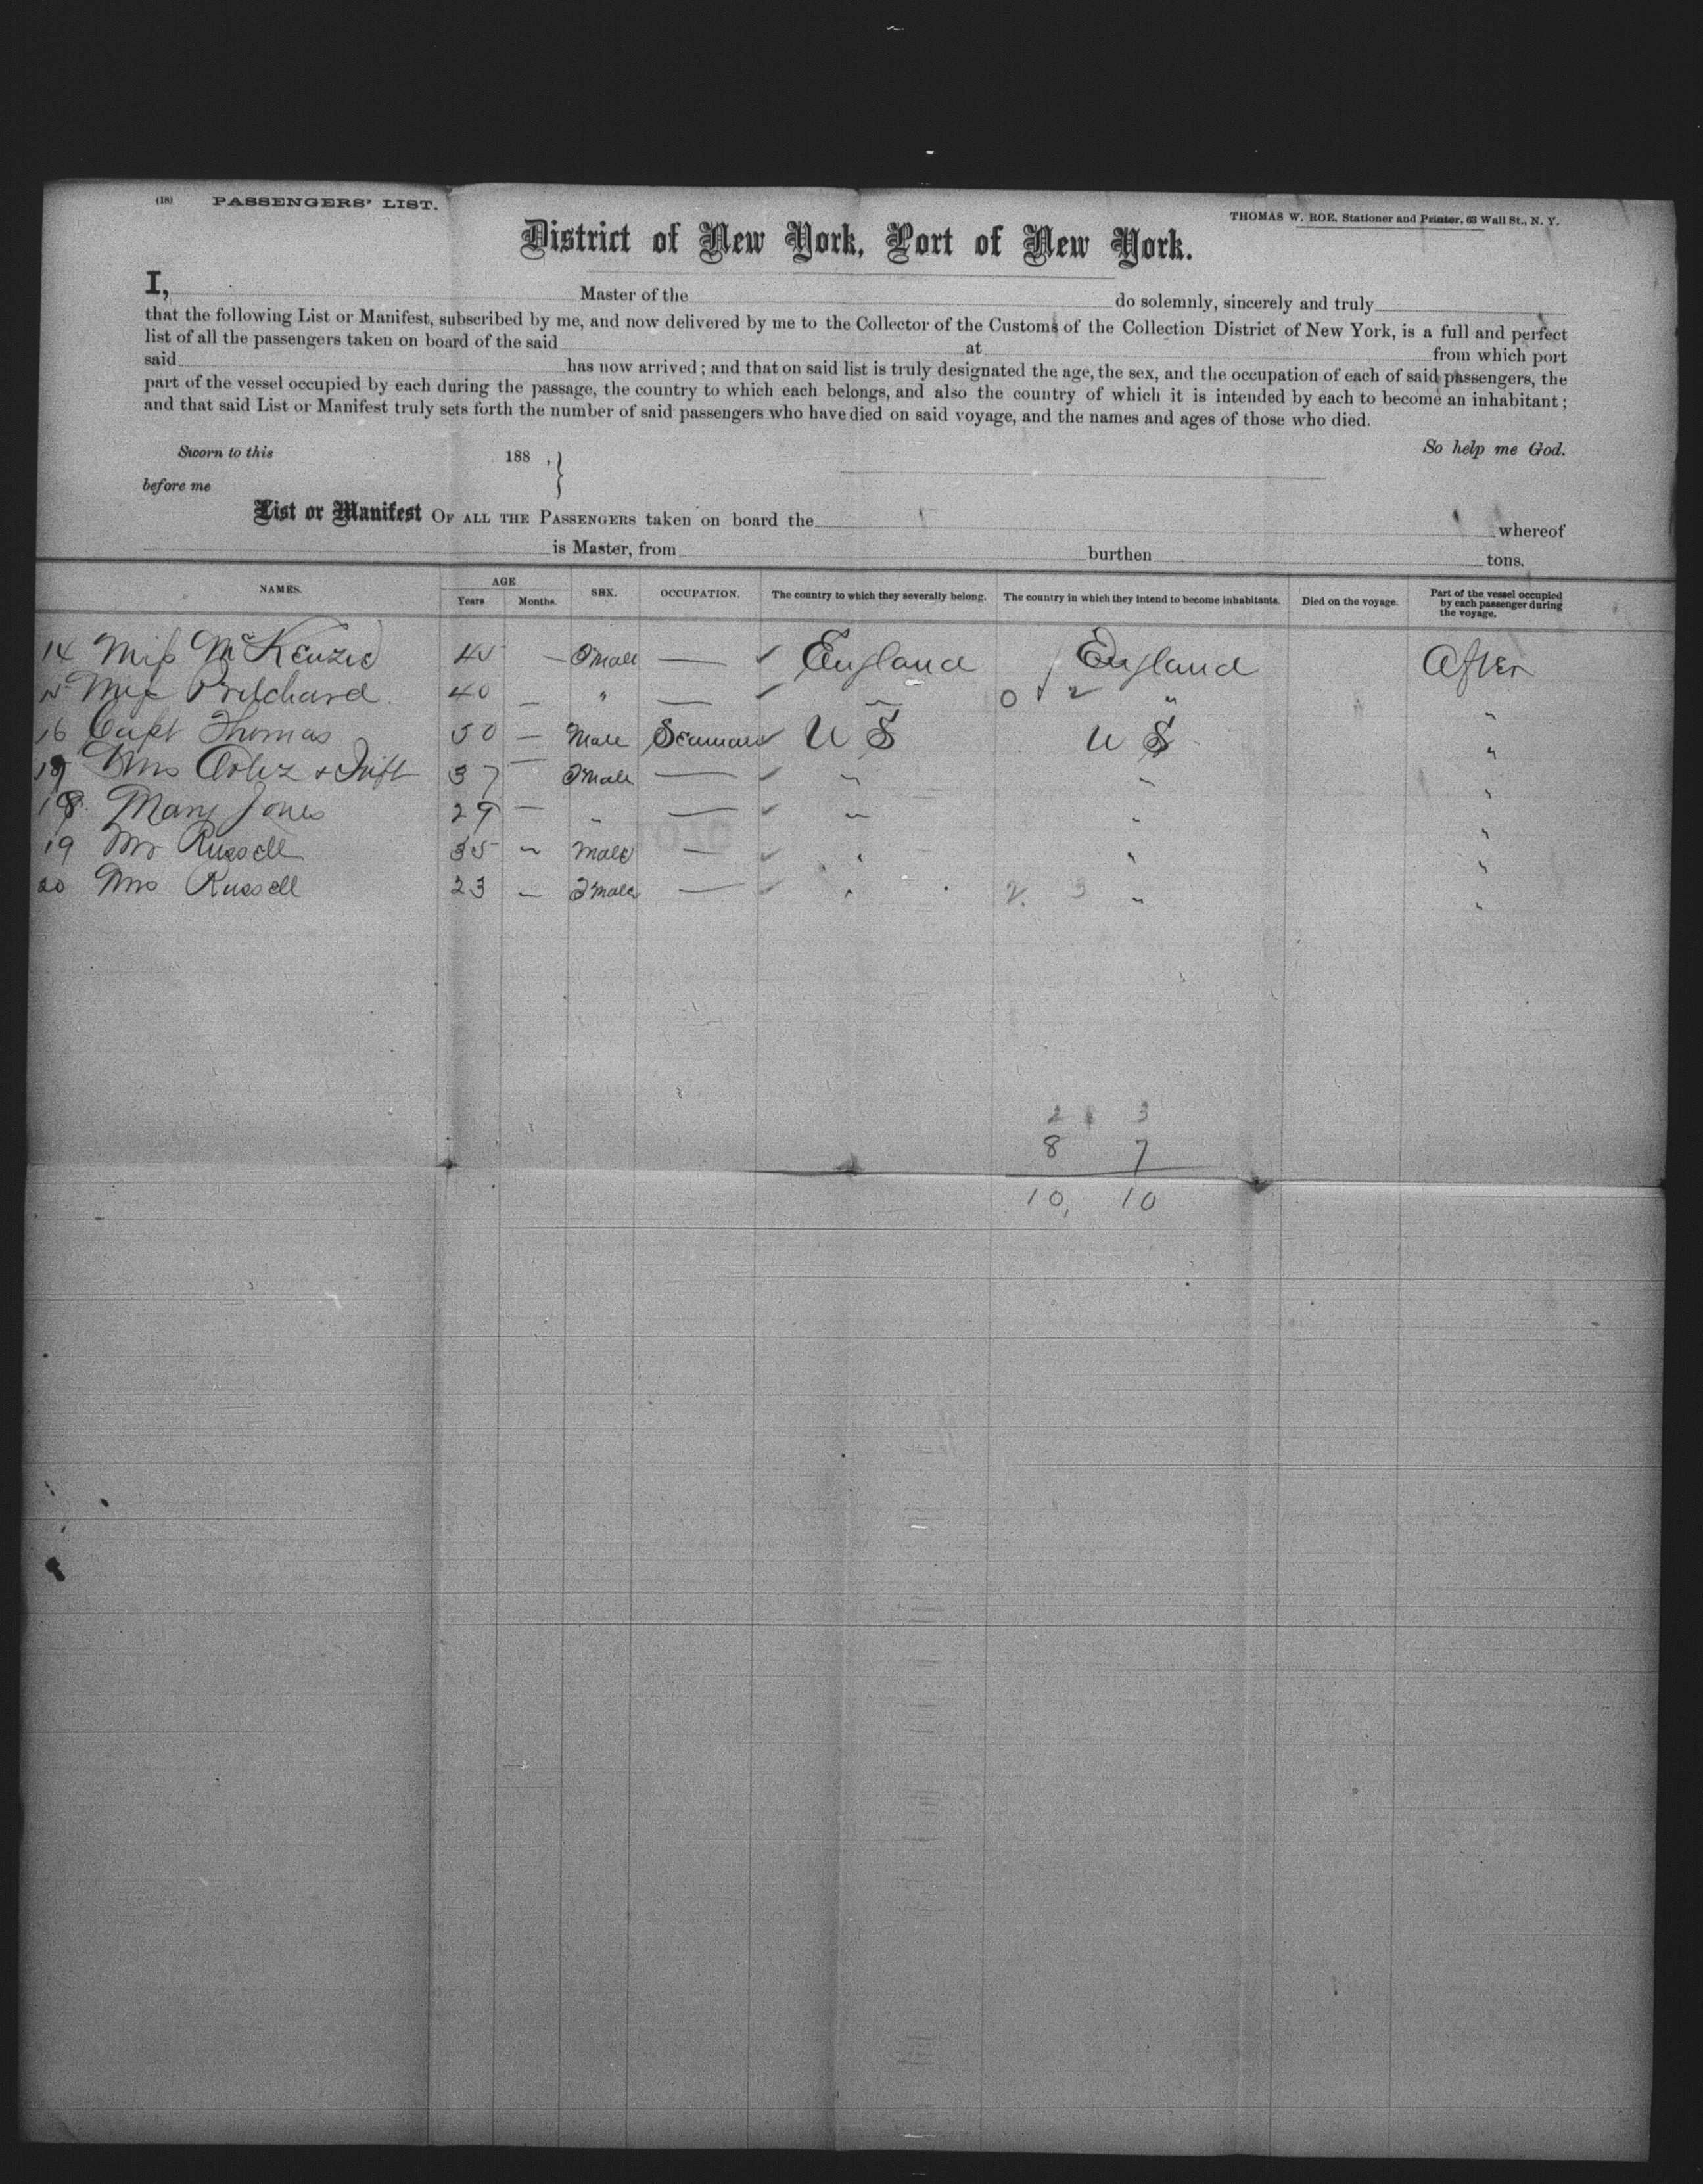 (18) PASSENGERS' LIST.
THOMAS W. ROE, Stationer and Printer, 63 Wall St., N. Y.
District of New York, Port of New York.
I, Master of the do solemnly, sincerely and truly
that the following List or Manifest, subscribed by me, and now delivered by me to the Collector of the Customs of the Collection District of New York, is a full and perfect
list of all the passengers taken on board of the said at from which port
said has now arrived; and that on said list is truly designated the age, the sex, and the occupation of each of said passengers, the
part of the vessel occupied by each during the passage, the country to which each belongs, and also the country of which it is intended by each to become an inhabitant;
and that said List or Manifest truly sets forth the number of said passengers who have died on said voyage, and the names and ages of those who died.
Sworn to this 188 , So help me God.
before me
List or Manifest OF ALL THE PASSENGERS taken on board the whereof
is Master, from burthen tons.
NAMES. AGE Years Months. SEX. OCCUPATION. The country to which they severally belong. The country in which they intend to become inhabitants. Died on the voyage. Part of the vessel occupied by each passenger during the voyage.
14 Miss McKenzie 45 — Fmale — ✓ England England After
15 Miss Pritchard 40 — " — ✓ " 0 2 " "
16 Capt Thomas 50 — Male Seaman ✓ U S U S "
17 Mrs 37 — Fmale — ✓ " " "
18 Mary Jones 29 — " — ✓ " " "
19 Mr Russell 35 " Male — ✓ " " "
20 Mrs Russell 23 — Fmale — ✓ " 2. 3 " "
2 3
8 7
10, 10